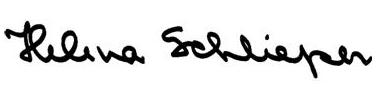 Helena Schlieper